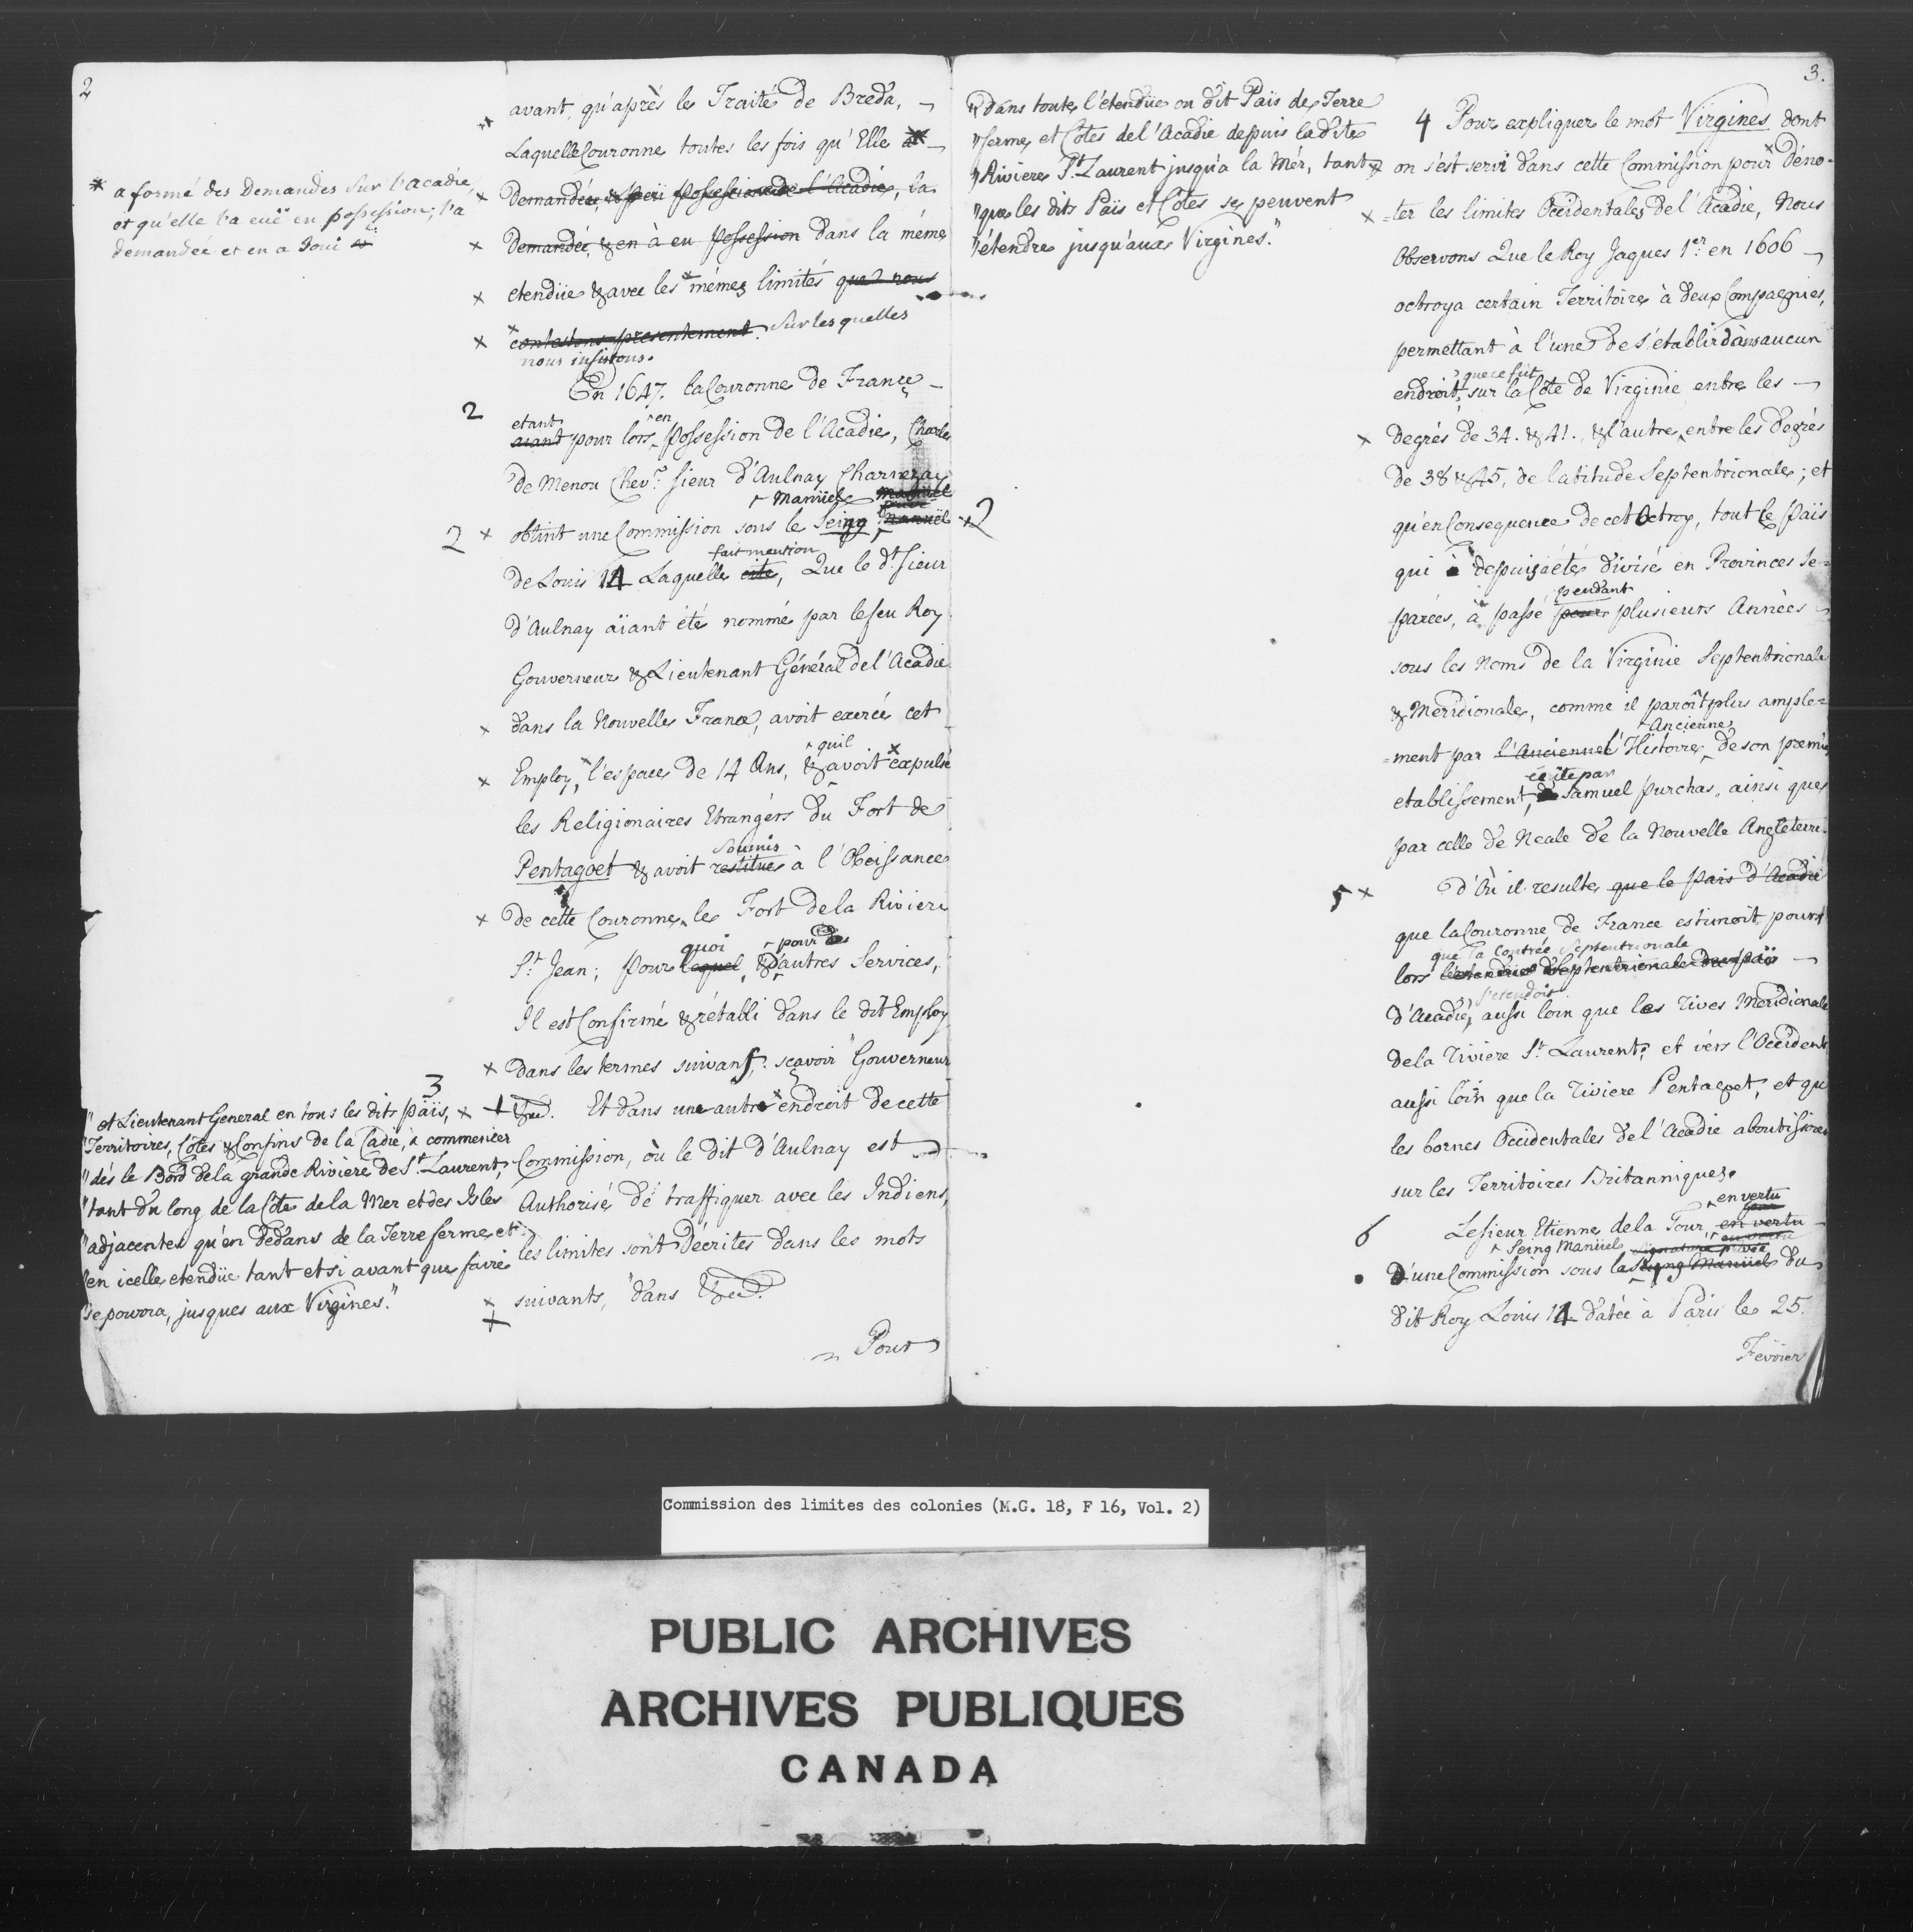 2
avant, qu'après le Traité de Breda,
Laquelle Couronne toutes les fois qu'Elle a
demandée, possession de l'Acadie, la
demandée, & en à eu Possession dans la même
etendüe & avec les mémes limités que nous
contestons presentement. Sur les quelles
nous insistons.
* a formé des Demandes Sur l'acadie,
et qu'elle l'a euë en possession; l'a
demandée et en a Joui
2
En 1647. la Couronne de France
etant en
aiant pour lors Possession de l'Acadie, Charles
de Menou Chev.r sieur d'Aulnay Charnezay
Manüel
2 obtint une Commission sous le Seing Manuël
fait mention
de Louis 14 Laquelle cite, Que le d.t Sieur
d'Aulnay aïant été nommé par le feu Roy
Gouverneur & Lieutenant Général de l'Acadie
dans la Nouvelle France, avoit exercé cet
quil
Employ, l'espace de 14 Ans, & avoit expulsé
les Religionaires Etrangérs du Fort de
Soumis
Pentagoet & avoit restitué à l'Obeissance
de cette Couronne le Fort de la Riviere
quoi pour
S.t Jean; pour laquel, & d'autres Services,
Il est Confirmé & rétabli dans le dit Employ
dans les termes suivans, scavoir "Gouverneur
3
&ca. Et dans une autre endroit de cette
Commission, où le dit d'Aulnay est
Authorisé de traffiquer avec les Indiens,
les limites sont décrites dans les mots
suivants, "dans &ca."
Pour
" et Lieutenant General en tous les dits païs,
"Territoires, Côtes & Confins de la Cadie, à commencer
"dés le Bord de la grande Riviere de S.t Laurent,
"tant du long de la Côte de la Mer et des Isles
"adjacentes qu'en dedans de la Terre ferme, et
"en icelle etendüe tant et si avant que faire
"se pourra, jusques aux Virgines."
"Dans toute l'étendüe ou dit Païs de Terre
"ferme, et Côtes de l'Acadie depuis la dite
"Riviere S.t Laurent jusqu'a la Mér, tant
"que les dits Païs et Côtes se peuvent
"étendre jusqu'aux Virgines."
2
3.
4 Pour expliquer le mot Virgines dont
on s'est servi dans cette Commission pour déno-
=ter les limites Occidentales de l'Acadie, Nous
Observons Que le Roy Jaques 1er en 1606
octroya certain Territoire à deux Compagnies,
permettant à l'une de s'établir dans aucun
que ce fut
endroit, sur la Côte de Virginie entre les
degrés de 34. & 41., & l'autre, entre les degrés
de 38 & 45, de latitude Septentrionale; et
qu'en Consequence de cet Octroy, tout le Païs
qui à depuis été divisé en Provinces se=
pendant
parées, a passé pour plusieurs Années
sous les Noms de la Virginie Septentrionale
& Meridionale, comme il paroît plus ample=
Ancienne
=ment par l'Ancienne l'Histoire, de son premier
écrite par
etablissement, de Samuel Purchas, ainsi que
par celle de Neale de la Nouvelle Angleterre.
5 D'Où il resulte, que le païs d'Acadie
que la Couronne de France estimoit pour
que la Contrée Septentrionale
lors l'etendüe Septentrionale du païs
s'etendoit
d'Acadie, aussi loin que les Rives Meridionale
de la Riviere S.t Laurent; et vérs l'Occident
aussi loin que la Riviere Pentagoet, et que
les bornes Occidentales de l'Acadie aboutissoient
sur les Territoires Britanniques.
en vertu
6 Le Sieur Etienne de la Tour en vertu
Seing Manüel signature privée
d'une Commission sous la Seing Manüel du
dit Roy Louis 14 datée à Paris le 25.
Fevrier
Commission des limites des colonies (M.G. 18, F 16, Vol. 2)
PUBLIC ARCHIVES
ARCHIVES PUBLIQUES
CANADA